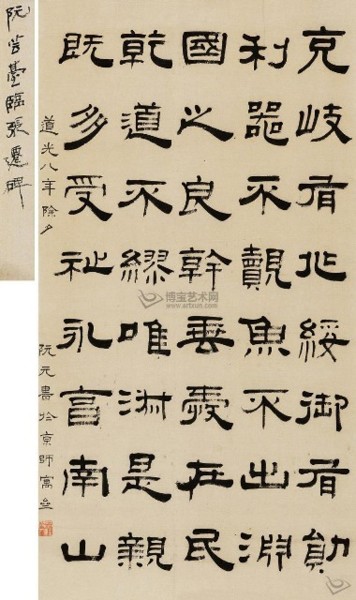 克岐有兆綏御有勛
利器不覿魚不出淵
國之良幹垂愛在民
乾道不繆唯淑是親
既多受祉永享南山
道光八年除夕
阮元書於京師寓
阮芸臺臨張遷碑
博宝艺术网
www.artxun.com